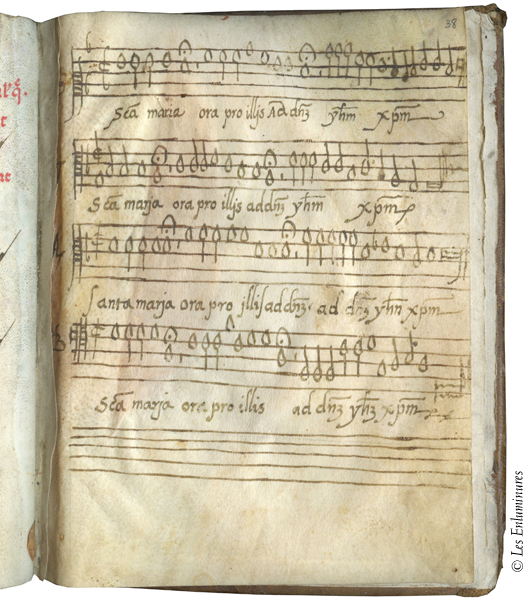 38
Sc̃a maria ora pro illis Ad dñz yħm xp̄m
Sc̃a marja ora pro illjs ad dñz yħm xp̄m
Santa marja ora pro jllis ad dñz ad dñz yħn xp̄m
Sc̃a marja ora pro illis ad dñz yħz xp̄m
© Les Enluminures